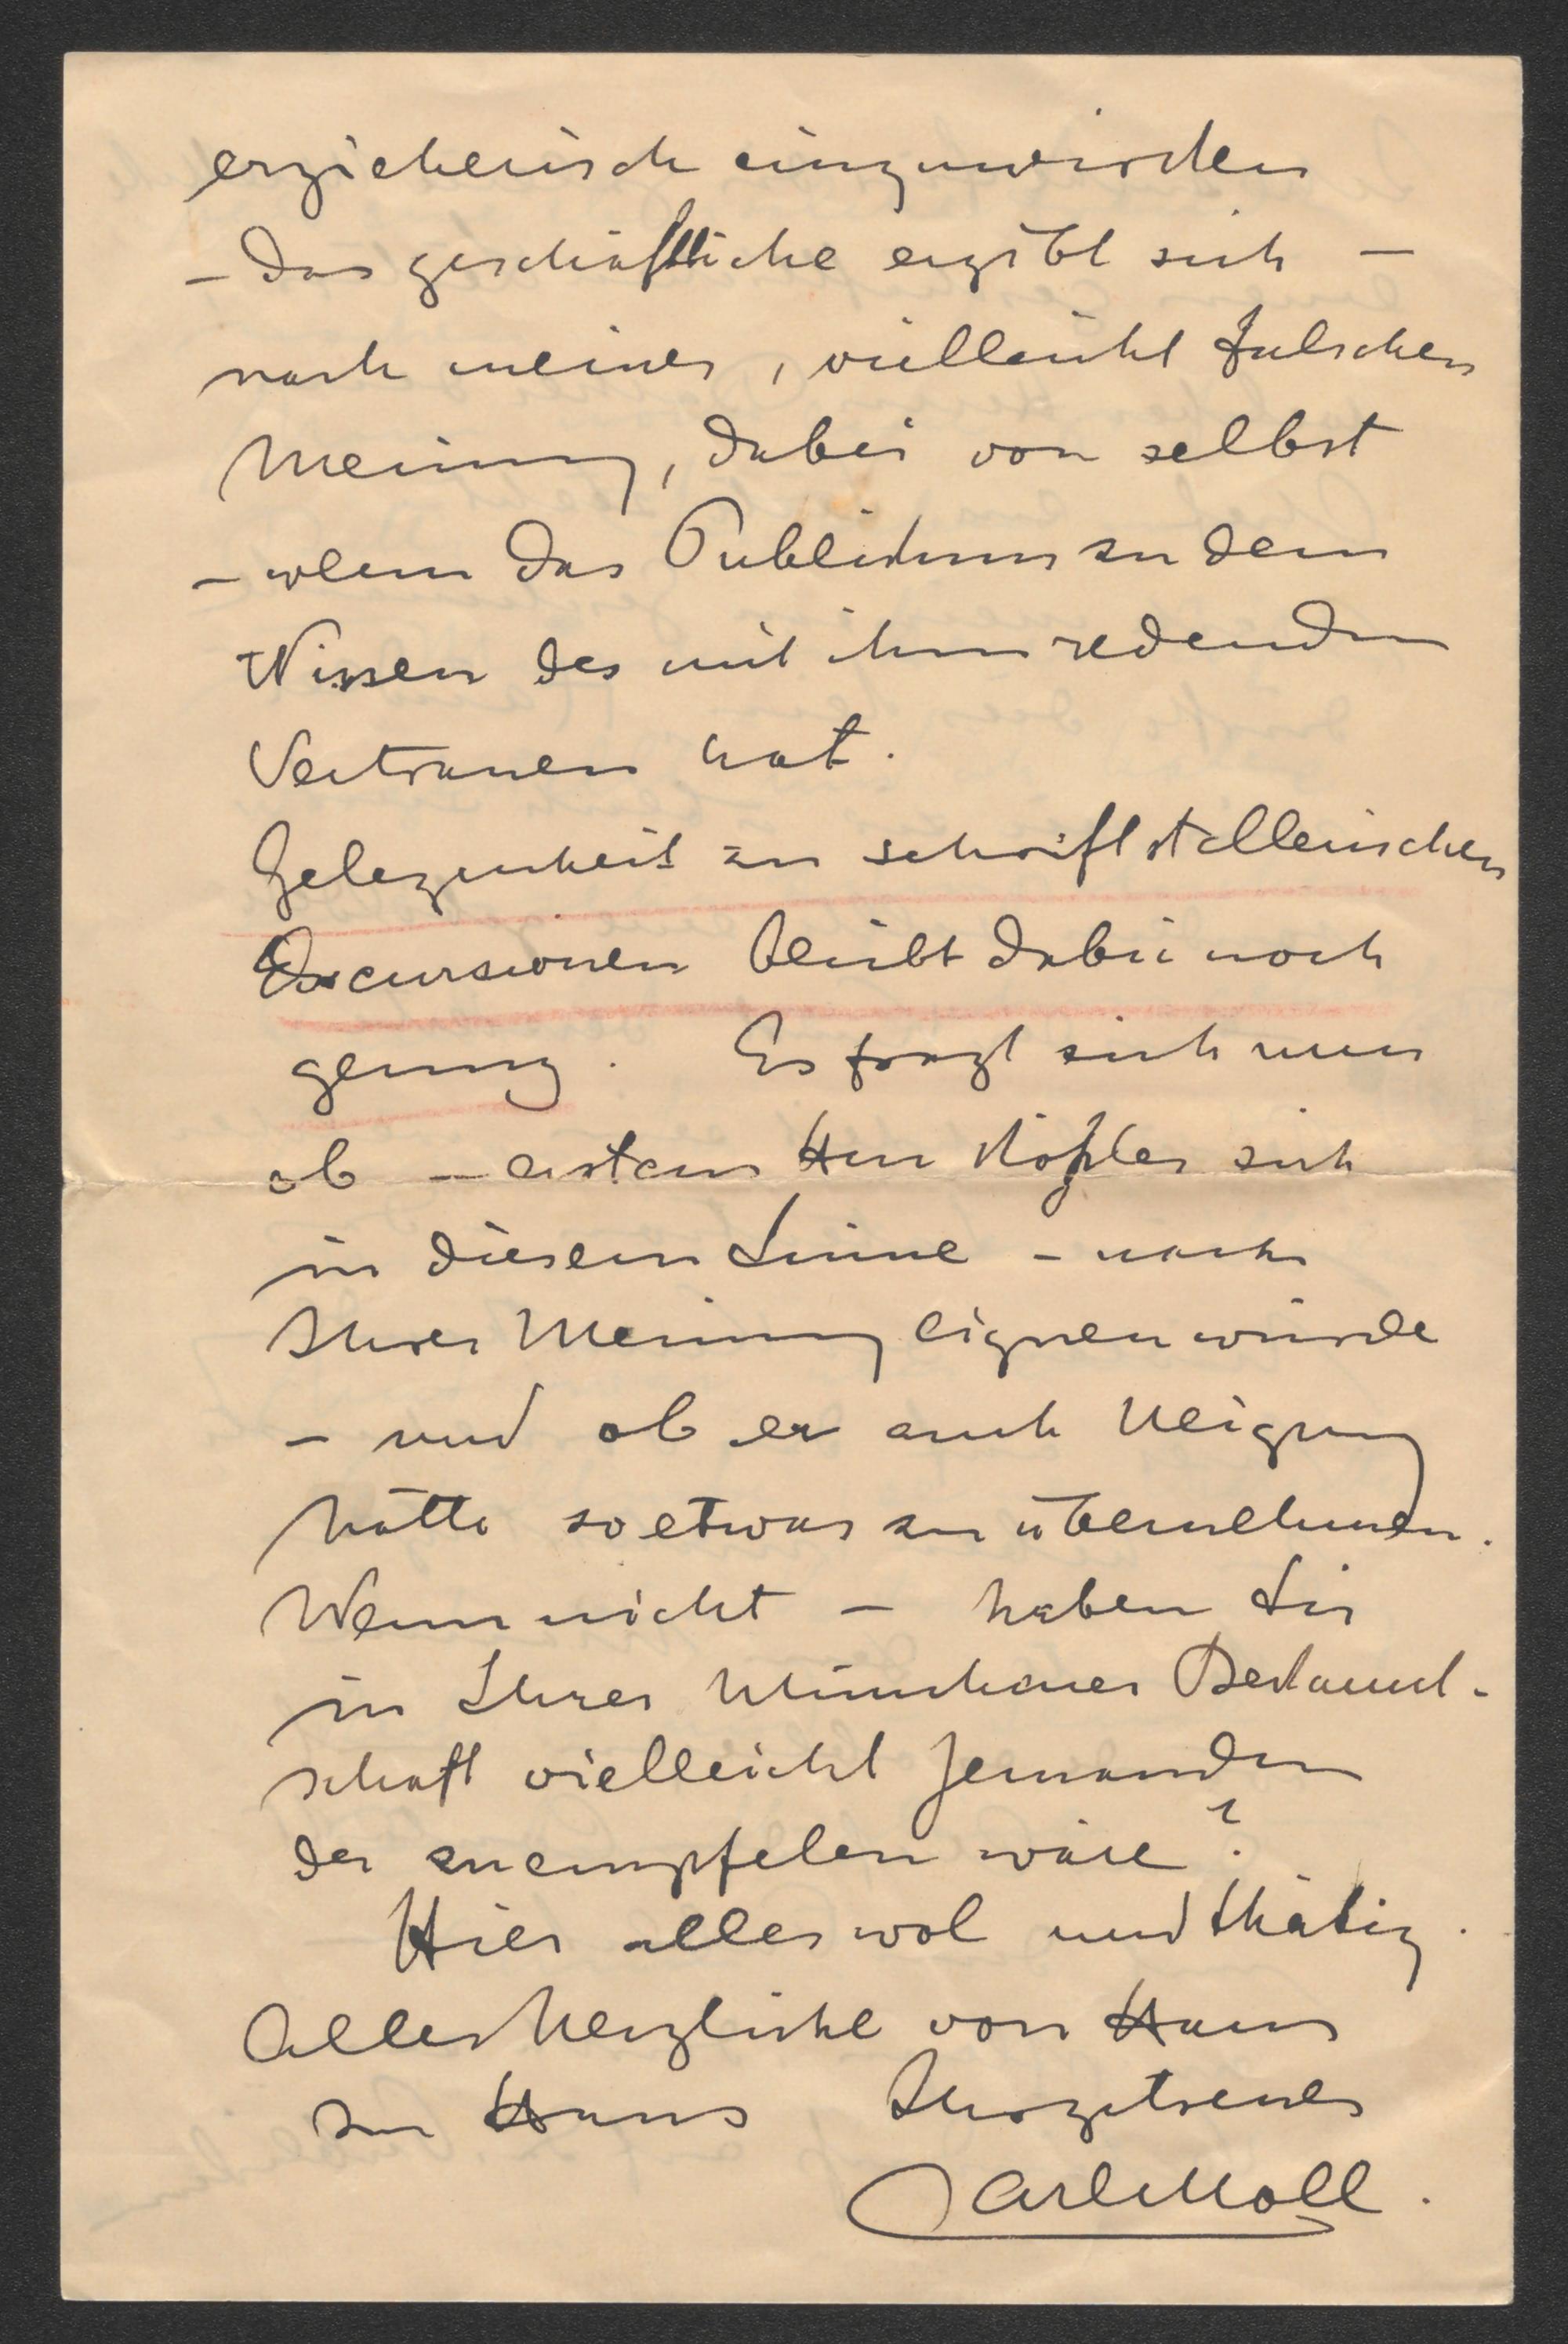 erzieherisch einzuwirken
– das geschäftliche ergibt sich –
nach meiner, vielleicht falschen
Meinung, dabei von selbst
– wenn das Publikum zu dem
Wissen des mit ihm redenden
Vertrauen hat.
Gelegenheit zu schriftstellerischen
Excursionen bleibt dabei noch
genug. Es fragt sich nun
ob – erstens Herr sich
in diesem Sinne – nach
Ihrer Meinung eignen würde
– und ob er auch Neigung
hätte so etwas zu übernehmen.
Wenn nicht – haben Sie
in Ihrer Münchener Bekannt-
schaft vielleicht Jemanden
der zu empfelen wäre?
Hier alles wol und thätig.
Alles Herzliche von Haus
zu Haus Ihr
Carl Moll.